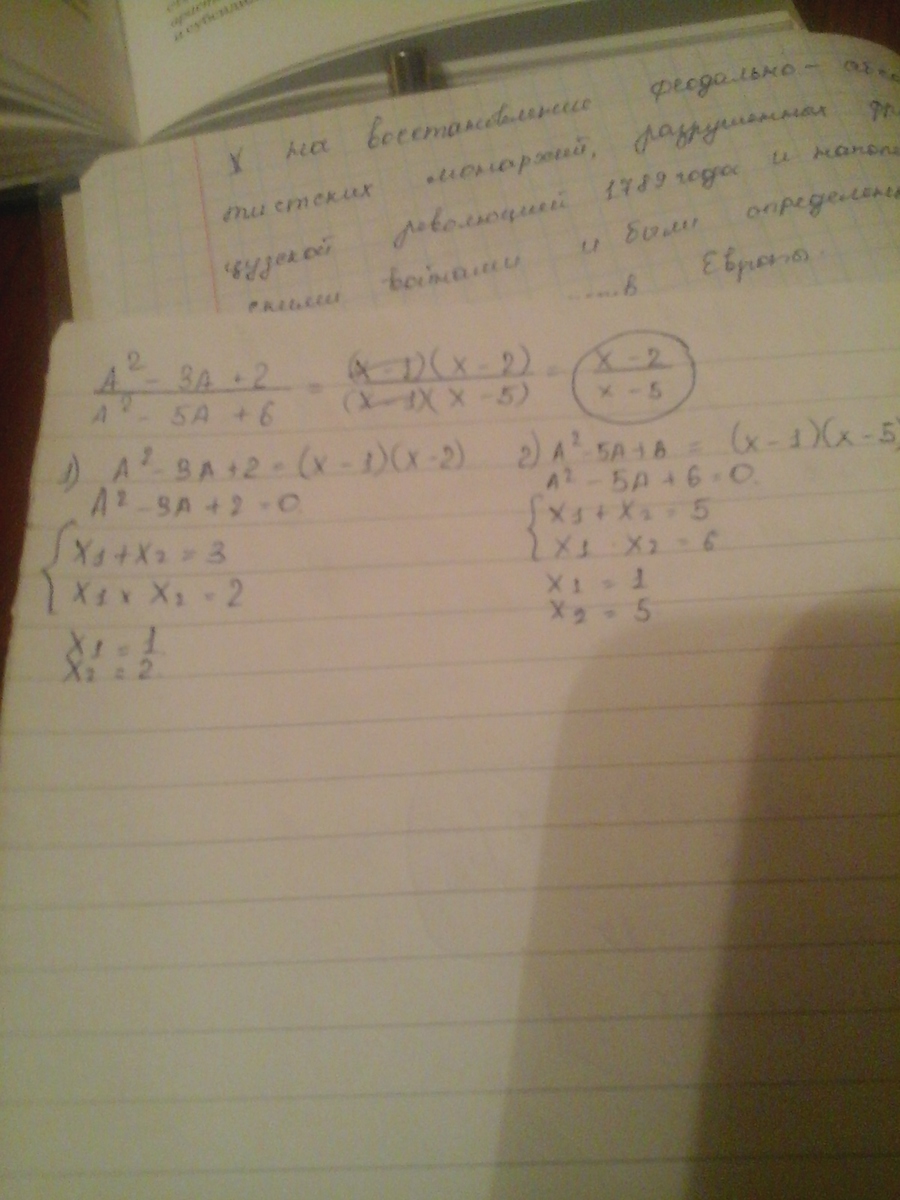 и субсидиа
X на восстановление феодально-абсо
тистских монархий, разрушенных фра
цузской революцией 1789 года и наполе
скими войнами и были определены
.....в Европы.
A² - 3A + 2 / A² - 5A + 6 = (x - 1)(x - 2) / (x - 1)(x - 5) = x - 2 / x - 5
1) A² - 3A + 2 = (x - 1)(x - 2)
A² - 3A + 2 = 0
{ x₁ + x₂ = 3
x₁ × x₂ = 2
x₁ = 1
x₂ = 2
2) A² - 5A + 6 = (x - 1)(x - 5)
A² - 5A + 6 = 0
{ x₁ + x₂ = 5
x₁ · x₂ = 6
x₁ = 1
x₂ = 5